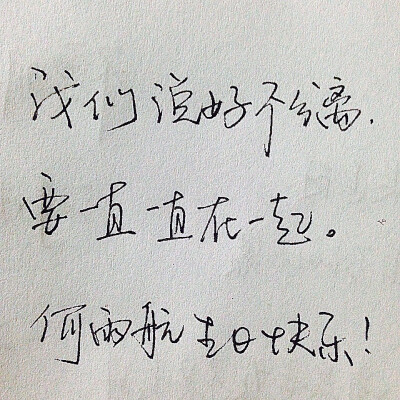 我们说好不分离.
要一直一直在一起。
何雨航生日快乐!